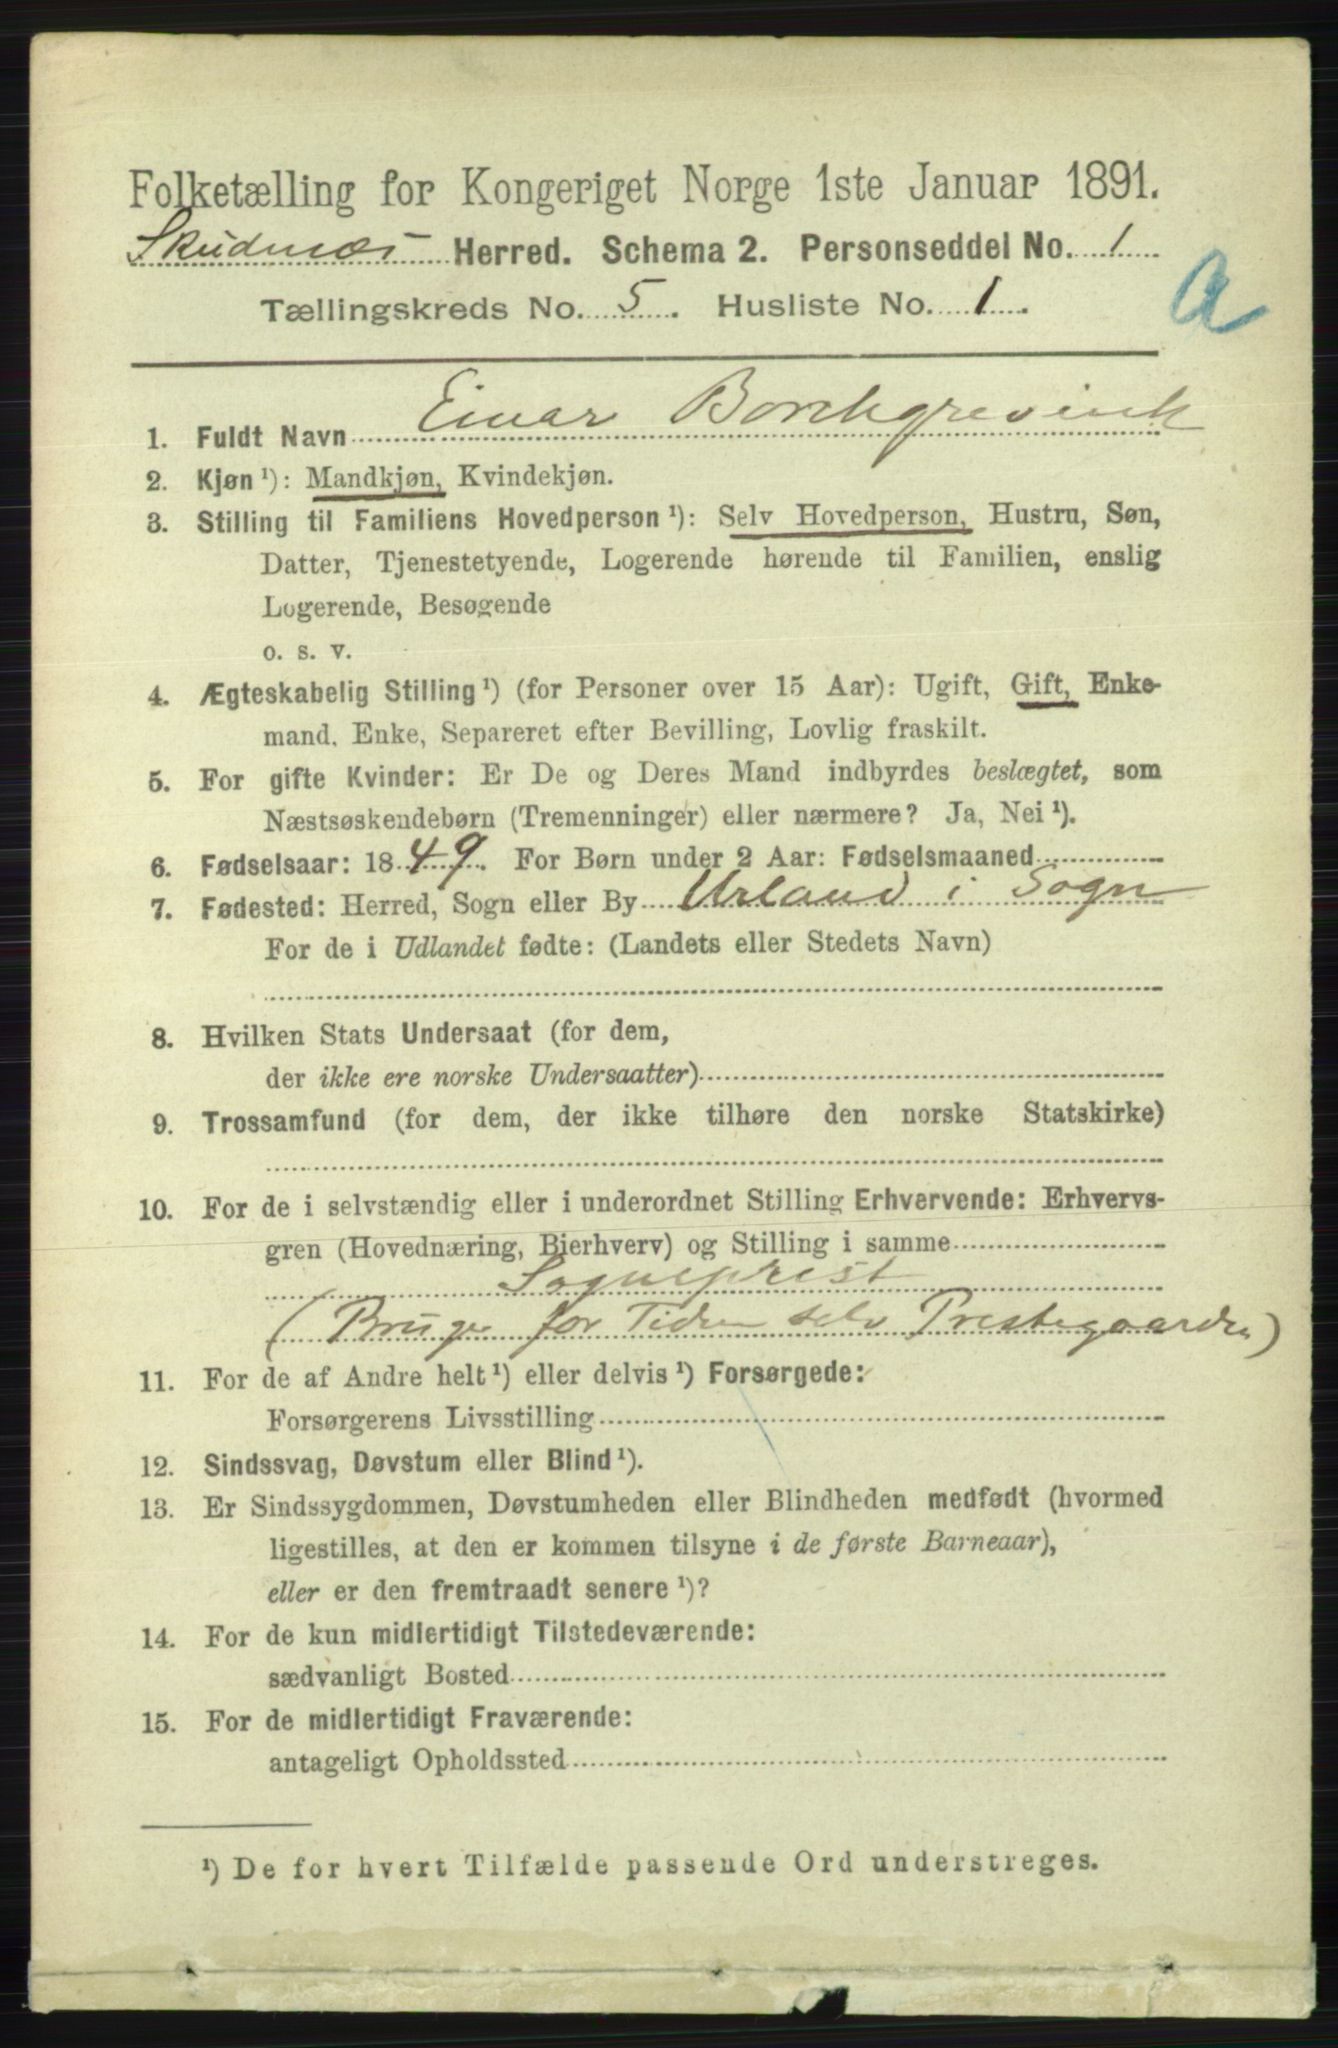 Folketælling for Kongeriget Norge 1ste Januar 1891.
Skudenæs Herred. Schema 2. Personseddel No. 1
Tællingskreds No. 5. Husliste No. 1.
a
1. Fuldt Navn Einar Borchgrevink
2. Kjøn ¹): Mandkjøn, Kvindekjøn.
3. Stilling til Familiens Hovedperson ¹): Selv Hovedperson, Hustru, Søn,
Datter, Tjenestetyende, Logerende hørende til Familien, enslig
Logerende, Besøgende
o. s. v.
4. Ægteskabelig Stilling ¹) (for Personer over 15 Aar): Ugift, Gift, Enke-
mand, Enke, Separeret efter Bevilling, Lovlig fraskilt.
5. For gifte Kvinder: Er De og Deres Mand indbyrdes beslægtet, som
Næstsøskendebørn (Tremenninger) eller nærmere? Ja, Nei ¹).
6. Fødselsaar: 1849. For Børn under 2 Aar: Fødselsmaaned
7. Fødested: Herred, Sogn eller By Urland i Sogn
For de i Udlandet fødte: (Landets eller Stedets Navn)
8. Hvilken Stats Undersaat (for dem,
der ikke ere norske Undersaatter)
9. Trossamfund (for dem, der ikke tilhøre den norske Statskirke)
10. For de i selvstændig eller i underordnet Stilling Erhvervende: Erhvervs-
gren (Hovednæring, Bierhverv) og Stilling i samme
Sogneprest
(Bruger for Tiden selv Prestegaarden)
11. For de af Andre helt ¹) eller delvis ¹) Forsørgede:
Forsørgerens Livsstilling
12. Sindssvag, Døvstum eller Blind ¹).
13. Er Sindssygdommen, Døvstumheden eller Blindheden medfødt (hvormed
ligestilles, at den er kommen tilsyne i de første Barneaar),
eller er den fremtraadt senere ¹)?
14. For de kun midlertidigt Tilstedeværende:
sædvanligt Bosted
15. For de midlertidigt Fraværende:
antageligt Opholdssted
¹) De for hvert Tilfælde passende Ord understreges.